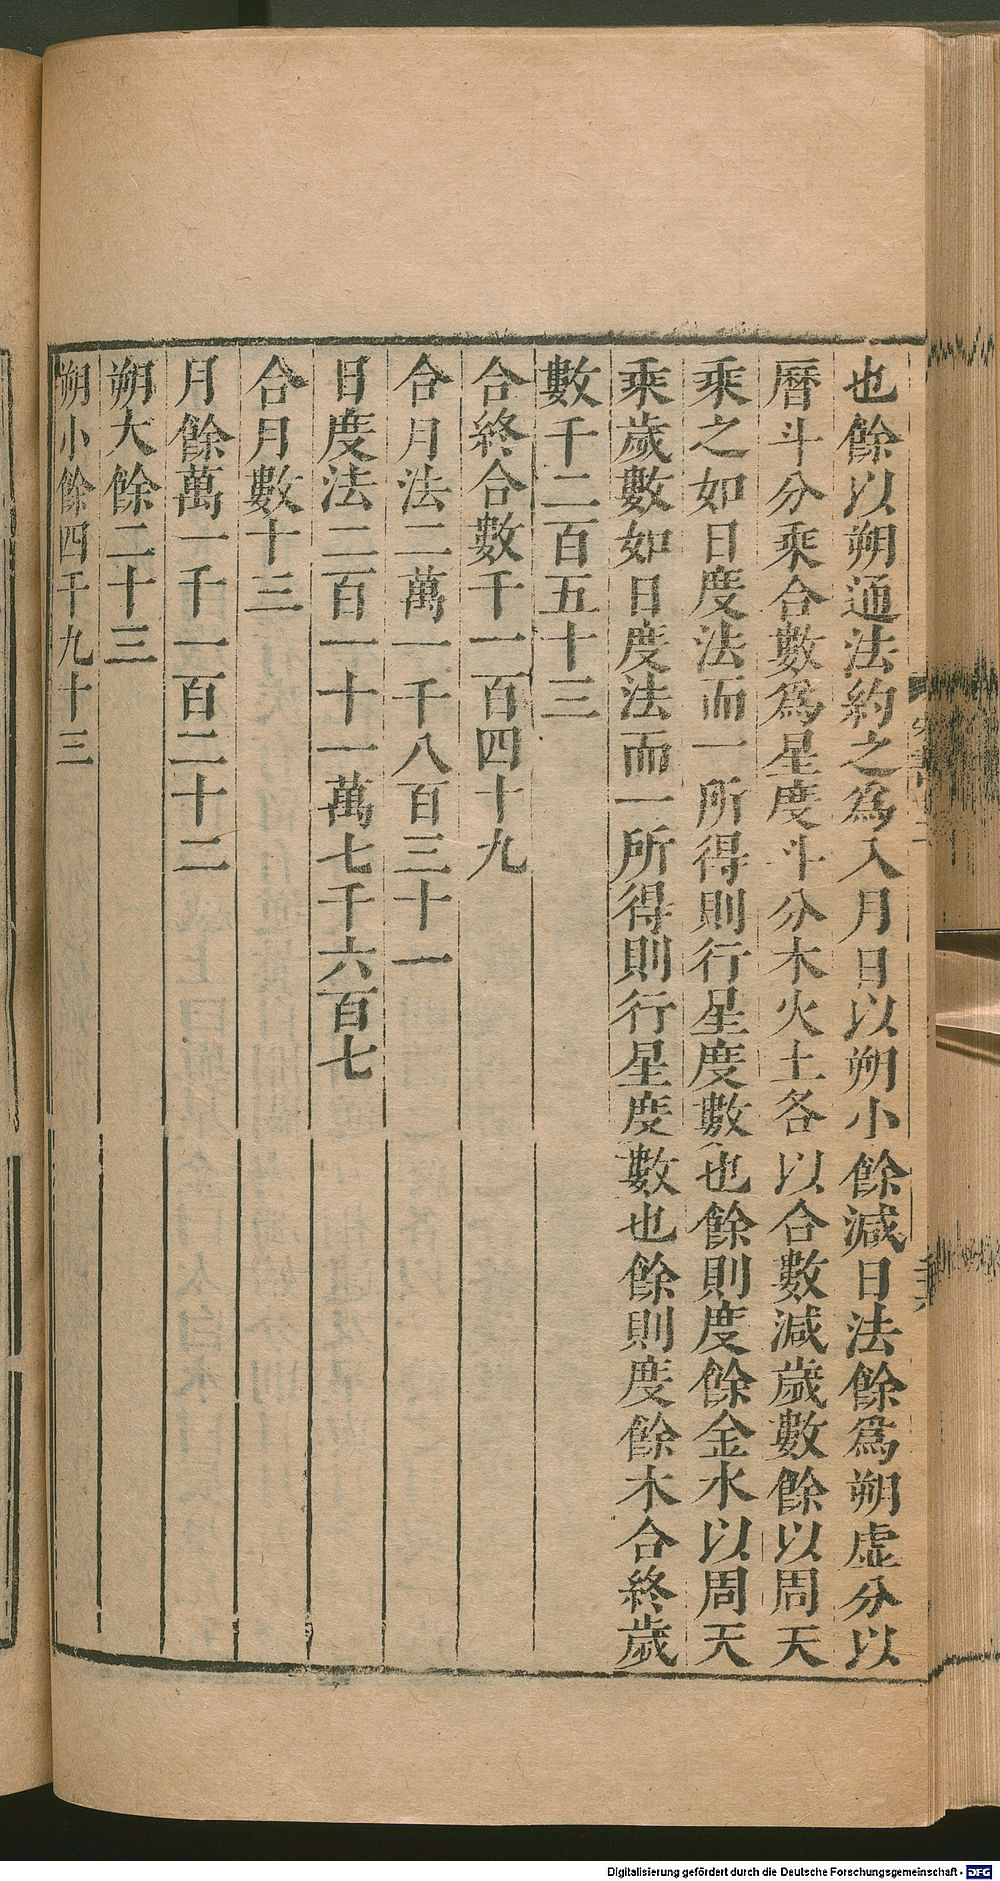 也餘以朔通法約之爲入月日以朔小餘減日法餘爲朔虛分以
曆斗分乘合數爲星度斗分木火土各以合數減歲數餘以周天
乘之如日度法而一所得則行星度數也餘則度餘金水以周天
乘歲數如日度法而一所得則行星度數也餘則度餘木合終歲
數千二百五十三
合終合數千一百四十九
合月法二萬一千八百三十一
日度法二百一十一萬七千六百七
合月數十三
月餘萬一千一百二十二
朔大餘二十三
朔小餘四千九十三
Digitalisierung gefördert durch die Deutsche Forschungsgemeinschaft - DFG